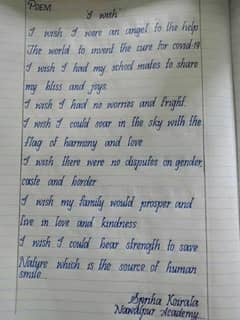 POEM
"I wish"
I wish I were an angel to the help
The world to invent the cure for covid-19
I wish I had my school mates to share
my bliss and joys.
I wish I had no worries and fright.
I wish I could soar in the sky with the
flag of harmony and love
I wish there were no disputes on gender,
caste and border
I wish my family would prosper and
live in love and kindness
I wish I could bear strength to save
Nature which is the source of human
smile...
Spriha Koirala
Nawalpur Academy